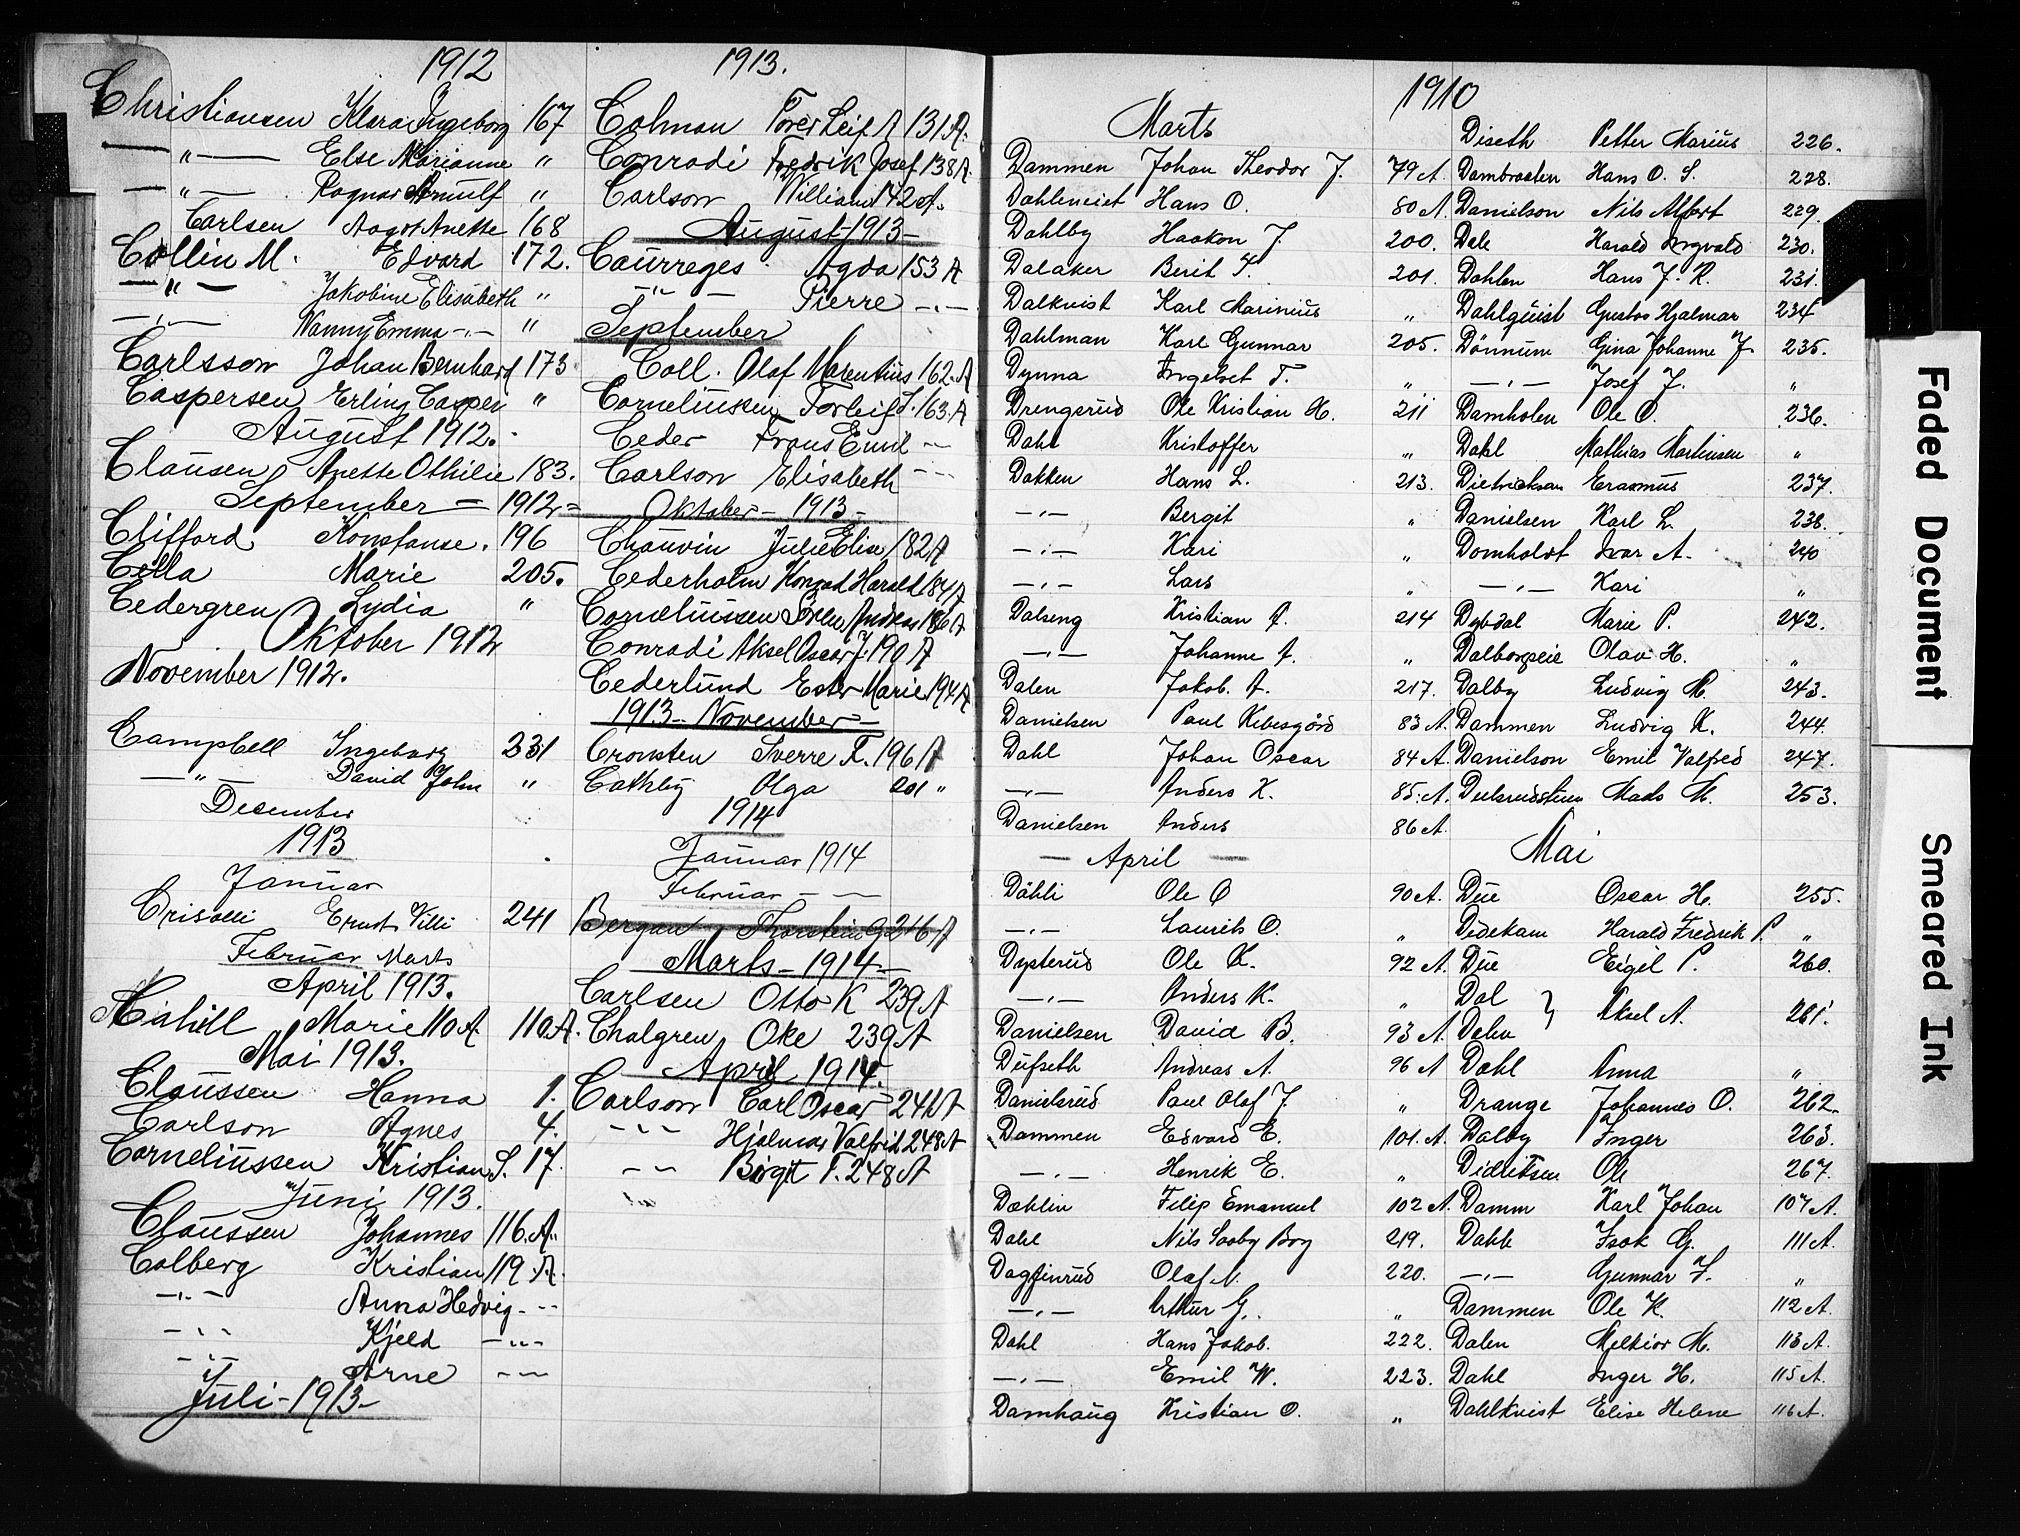 1912
Christiansen Klara Ingeborg 167
— „ — Else Marianne „
— „ — Ragnar Arnulf „
Carlsen Aagot Anette 168
Collin M. Edvard 172.
— „ — Jakobine Elisabeth „
— „ — Nanny Emma „
Carlsson Johan Bernhard 173
Caspersen Erling Casper „
August 1912.
Clausen Anette Othilie 183.
September — 1912
Clifford Konstanse. 196
Cella Marie 205.
Cedergren Lydia „
Oktober 1912
November 1912.
Campbell Ingeborg 231
— „ — David John „
Desember
1913
Januar
Crisolli Ernst Villi 241
Februar Marts
April 1913.
Marie 110 A. 110.A.
Mai 1913.
Claussen Hanna 1.
Carlson Agnes 4.
Corneliussen Kristian S. 17.
Juni 1913.
Claussen Johannes 116.A.
Colberg Kristian 119.A.
— „ — Anna Hedvig - - -
— „ — Kjeld — „ —
— „ — Arne — —
Juli - 1913 -
1913.
Colman Leif A 131 A.
Conradi Fredrik Josef 138 A.
Carlson William 142 A.
August - 1913 -
Courreges Agda 153 A
— „ — Pierre — „ —
September
Coll. Olaf Marentius 162. A
Corneliussen Torleif S. 163. A
Ceder Frans Emil — —
Carlson Elisabeth — —
Oktober - 1913 -
Chauvin Julie Elise 182 A
Cederholm Konrad Harald 184 A
Corneliussen Andreas 186 A
Conradi Aksel Oscar J. 190 A
Cederlund Ester Marie 194 A
1913 - November -
Cronsten Sverre F. 196 A
Cathby Olga 201 „
1914
Januar 1914
Februar — —
Bergan Thorstein G 216 A
Marts - 1914 -
Carlsen Otto K 239 A
Chalgren Oke 239 A
April 1914.
Carlson Carl Oscar 241 A
— — Hjalmar Valfrid 248 A
— — Birgit T. 248 A
1910
Marts
Dammen Johan Theodor J. 79 A.
Dahleneiet Hans O. 80 A.
Dahlby Haakon J. 200.
Dalaker Berit T. 201.
Dalkvist Karl Marinius „
Dahlman Karl Gunnar 205.
Dynna Ingebret T. „
Drengsrud Ole Kristian H. 211
Dahl Kristoffer „
Dakken Hans L. 213.
— „ — Bergit „
— „ — Kari „
— „ — Lars „
Dalseng Kristian A. 214
— „ — Johanne A. „
Dalen Jakob. A. 217.
Danielsen Paul 83 A.
Dahl Johan Oscar 84 A.
— „ — Anders K. 85. A.
Danielsen Anders 86 A.
— April —
Dähli Ole O 90 A.
— „ — Laurits O. „
Dysterud Ole K. 92 A.
— „ — Anders K. „
Danielsen David B. 93 A.
Dufseth Andreas A. 96 A
Danielsrud Paul Olaf J. „
Dammen Edvard E. 101. A.
— „ — Henrik E. „
Dæhlin Filip Emanuel 102 A.
Dahl Nils Saaby Boy 219.
Dagfinrud Olaf N. 220.
— „ — Arthur G. „
Dahl Hans Jakob. 222.
— „ — Emil W. 223.
Damhaug Kristian O. „
Diseth Petter Marius 226.
Dambraaten Hans O. S. 228.
Danielson Nils Alfert 229.
Dele Harald Ingvald 230.
Dahlen Hans J. R. 231.
Dahlquist Gustav Hjalmar 234
Dönnum Gina Johanne J. 235.
— „ — Josef J. „
Damholen Ole O. 236.
Dahl Mathias Martinsen „
Dietrichson Erasmus 237.
Danielsen Karl L. 238.
Domholdt Ivar A. 240
— „ — Kari „
Dybdal Marie P. 242.
Dalborgseie Olav H. „
Dalby Ludvig M. 243.
Dammen Ludvig K. 244.
Danielson Emil Valfred 247.
Mads M. 253.
Mai
Due Oscar H. 255.
Dedekam Harald Fredrik P. „
Due Eigil P. 260.
Dal } Aksel A. 261.
Dehn
Dahl Anna „
Drange Johannes O. 262.
Dalby Inger 263.
Didriksen Ole 267.
Damm Karl Johan 107 A.
Dahl Isak G. 111 A.
— „ — Gunnar I. „
Dammen Ole K. 112 A.
Dalen Melkior M. 113 A.
Dahl Inger H. 115 A.
Dahlkvist Elise Helene 116 A.
Faded Document
Smeared Ink